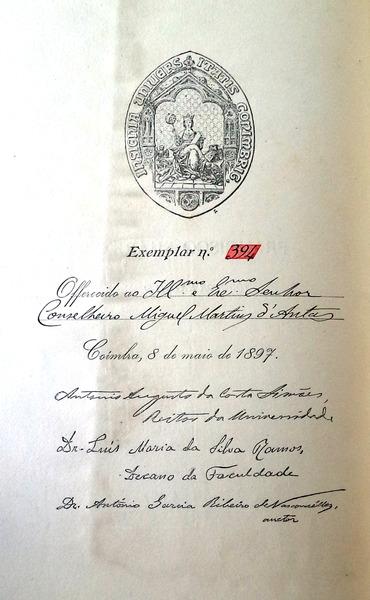 INSIGNIA VNIVERSITATIS CONIMBRIG.
Exemplar n.º 394
Offerecido ao Ill.mo e Ex.mo Senhor
Conselheiro Miguel Martins d'Antas
Coimbra, 8 de maio de 1897.
Antonio Augusto da Costa Simões,
Reitor da Universidade
Dr. Luís Maria da Silva Ramos,
Decano da Faculdade
Dr. António Garcia Ribeiro de Vasconcéllos,
auctor